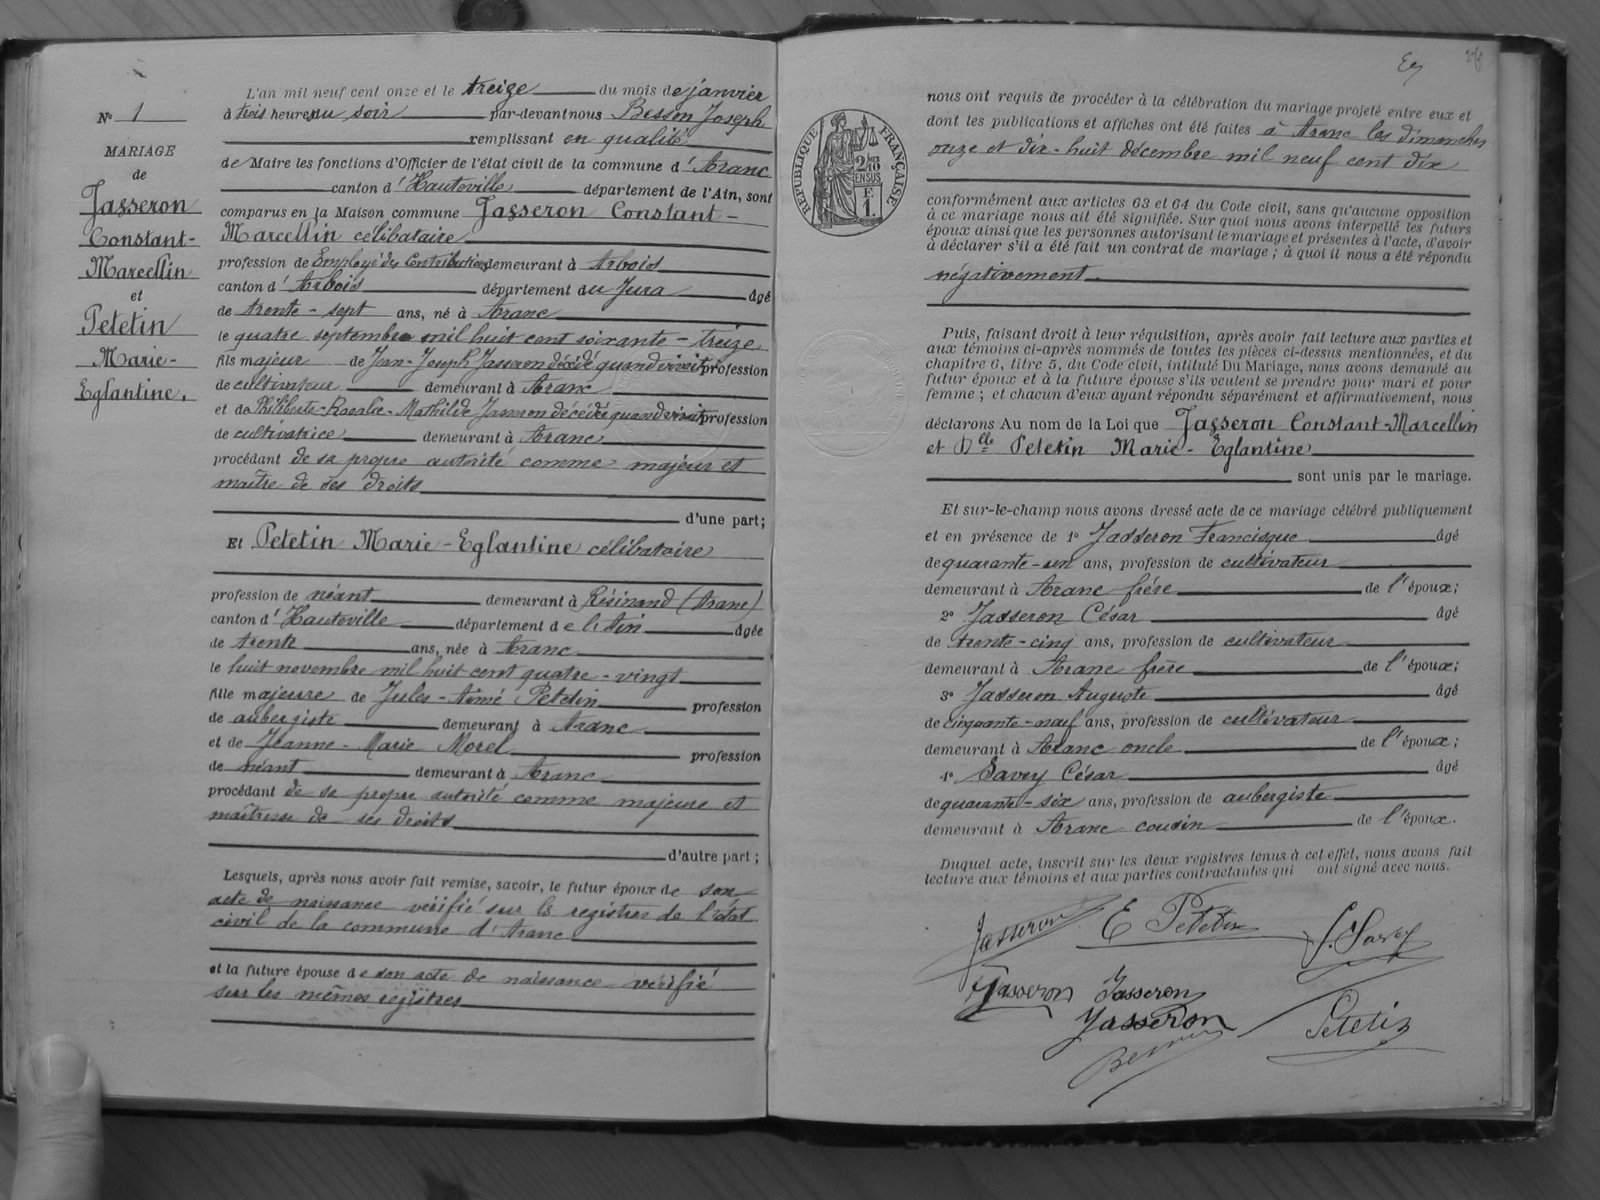 N° 1
MARIAGE
de
Jasseron
Constant-
Marcellin
et
Petetin
Marie-
Eglantine.
L'an mil neuf cent onze et le treize du mois de janvier
à trois heures du soir par-devant nous Besson Joseph
remplissant en qualité
de Maire les fonctions d'Officier de l'état civil de la commune d'Aranc
canton d'Hauteville département de l'Ain, sont
comparus en la Maison commune Jasseron Constant-
Marcellin célibataire
profession de Employé des Contributions demeurant à Arbois
canton d'Arbois département du Jura âgé
de trente-sept ans, né à Aranc
le quatre septembre mil huit cent soixante-treize
fils majeur de Jean-Joseph Jasseron décédé quand vivait profession
de cultivateur demeurant à Aranc
et de Philiberte-Rosalie-Mathilde Jasseron décédée quand vivait profession
de cultivatrice demeurant à Aranc
procédant de sa propre autorité comme majeur et
maître de ses droits
d'une part;
Et Petetin Marie-Eglantine célibataire
profession de néant demeurant à Résinand (Aranc)
canton d'Hauteville département de l'Ain âgée
de trente ans, née à Aranc
le huit novembre mil huit cent quatre-vingt
fille majeure de Jules-Aimé Petetin profession
de aubergiste demeurant à Aranc
et de Jeanne-Marie Morel profession
de néant demeurant à Aranc
procédant de sa propre autorité comme majeure et
maîtresse de ses droits
d'autre part;
Lesquels, après nous avoir fait remise, savoir, le futur époux de son
acte de naissance vérifié sur les registres de l'état
civil de la commune d'Aranc
et la future épouse de son acte de naissance vérifié
sur les mêmes registres
RÉPUBLIQUE FRANÇAISE
nous ont requis de procéder à la célébration du mariage projeté entre eux et
dont les publications et affiches ont été faites à Aranc les dimanches
onze et dix-huit décembre mil neuf cent dix
conformément aux articles 63 et 64 du Code civil, sans qu'aucune opposition
à ce mariage nous ait été signifiée. Sur quoi nous avons interpellé les futurs
époux ainsi que les personnes autorisant le mariage et présentes à l'acte, d'avoir
à déclarer s'il a été fait un contrat de mariage ; à quoi il nous a été répondu
négativement.
Puis, faisant droit à leur réquisition, après avoir fait lecture aux parties et
aux témoins ci-après nommés de toutes les pièces ci-dessus mentionnées, et du
chapitre 6, titre 5, du Code civil, intitulé Du Mariage, nous avons demandé au
futur époux et à la future épouse s'ils veulent se prendre pour mari et pour
femme ; et chacun d'eux ayant répondu séparément et affirmativement, nous
déclarons Au nom de la Loi que Jasseron Constant-Marcellin
et Dlle Petetin Marie-Eglantine
sont unis par le mariage.
Et sur-le-champ nous avons dressé acte de ce mariage célébré publiquement
et en présence de 1° Jasseron Francisque âgé
de quarante-un ans, profession de cultivateur
demeurant à Aranc frère de l'époux;
2° Jasseron César âgé
de trente-cinq ans, profession de cultivateur
demeurant à Aranc frère de l'époux;
3° Jasseron Auguste âgé
de cinquante-neuf ans, profession de cultivateur
demeurant à Aranc oncle de l'époux;
4° Savey César âgé
de quarante-six ans, profession de aubergiste
demeurant à Aranc cousin de l'époux.
Duquel acte, inscrit sur les deux registres tenus à cet effet, nous avons fait
lecture aux témoins et aux parties contractantes qui ont signé avec nous.
Jasseron E Petetin C. Savey
Jasseron Jasseron
Jasseron Petetin
Besson